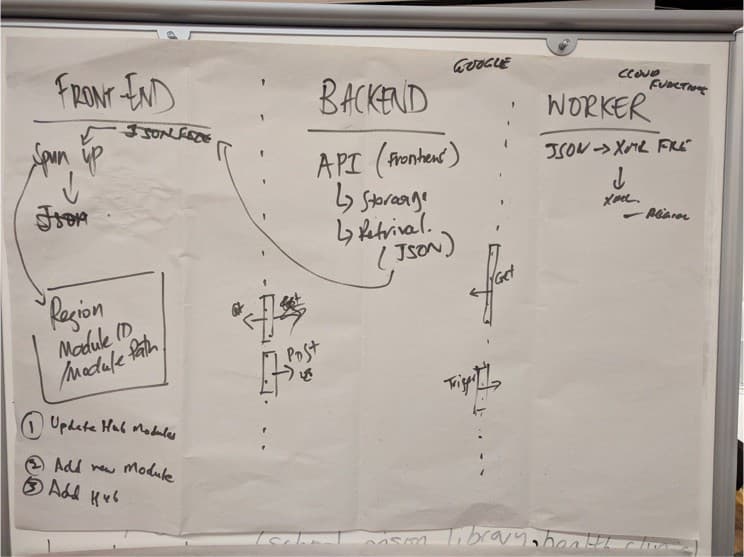 FRONT-END
JSON FILE
Spun up
JSON
Region
Module ID
/Module Path
① Update Hub Modules
② Add new Module
③ Add Hub
BACKEND
API (Frontend)
↳ Storage
↳ Retrival.
(JSON)
Get
Post
GOOGLE
Get
Trigger
CLOUD
FUNCTIONS
WORKER
JSON → XML FILE
XML
library, health clinic